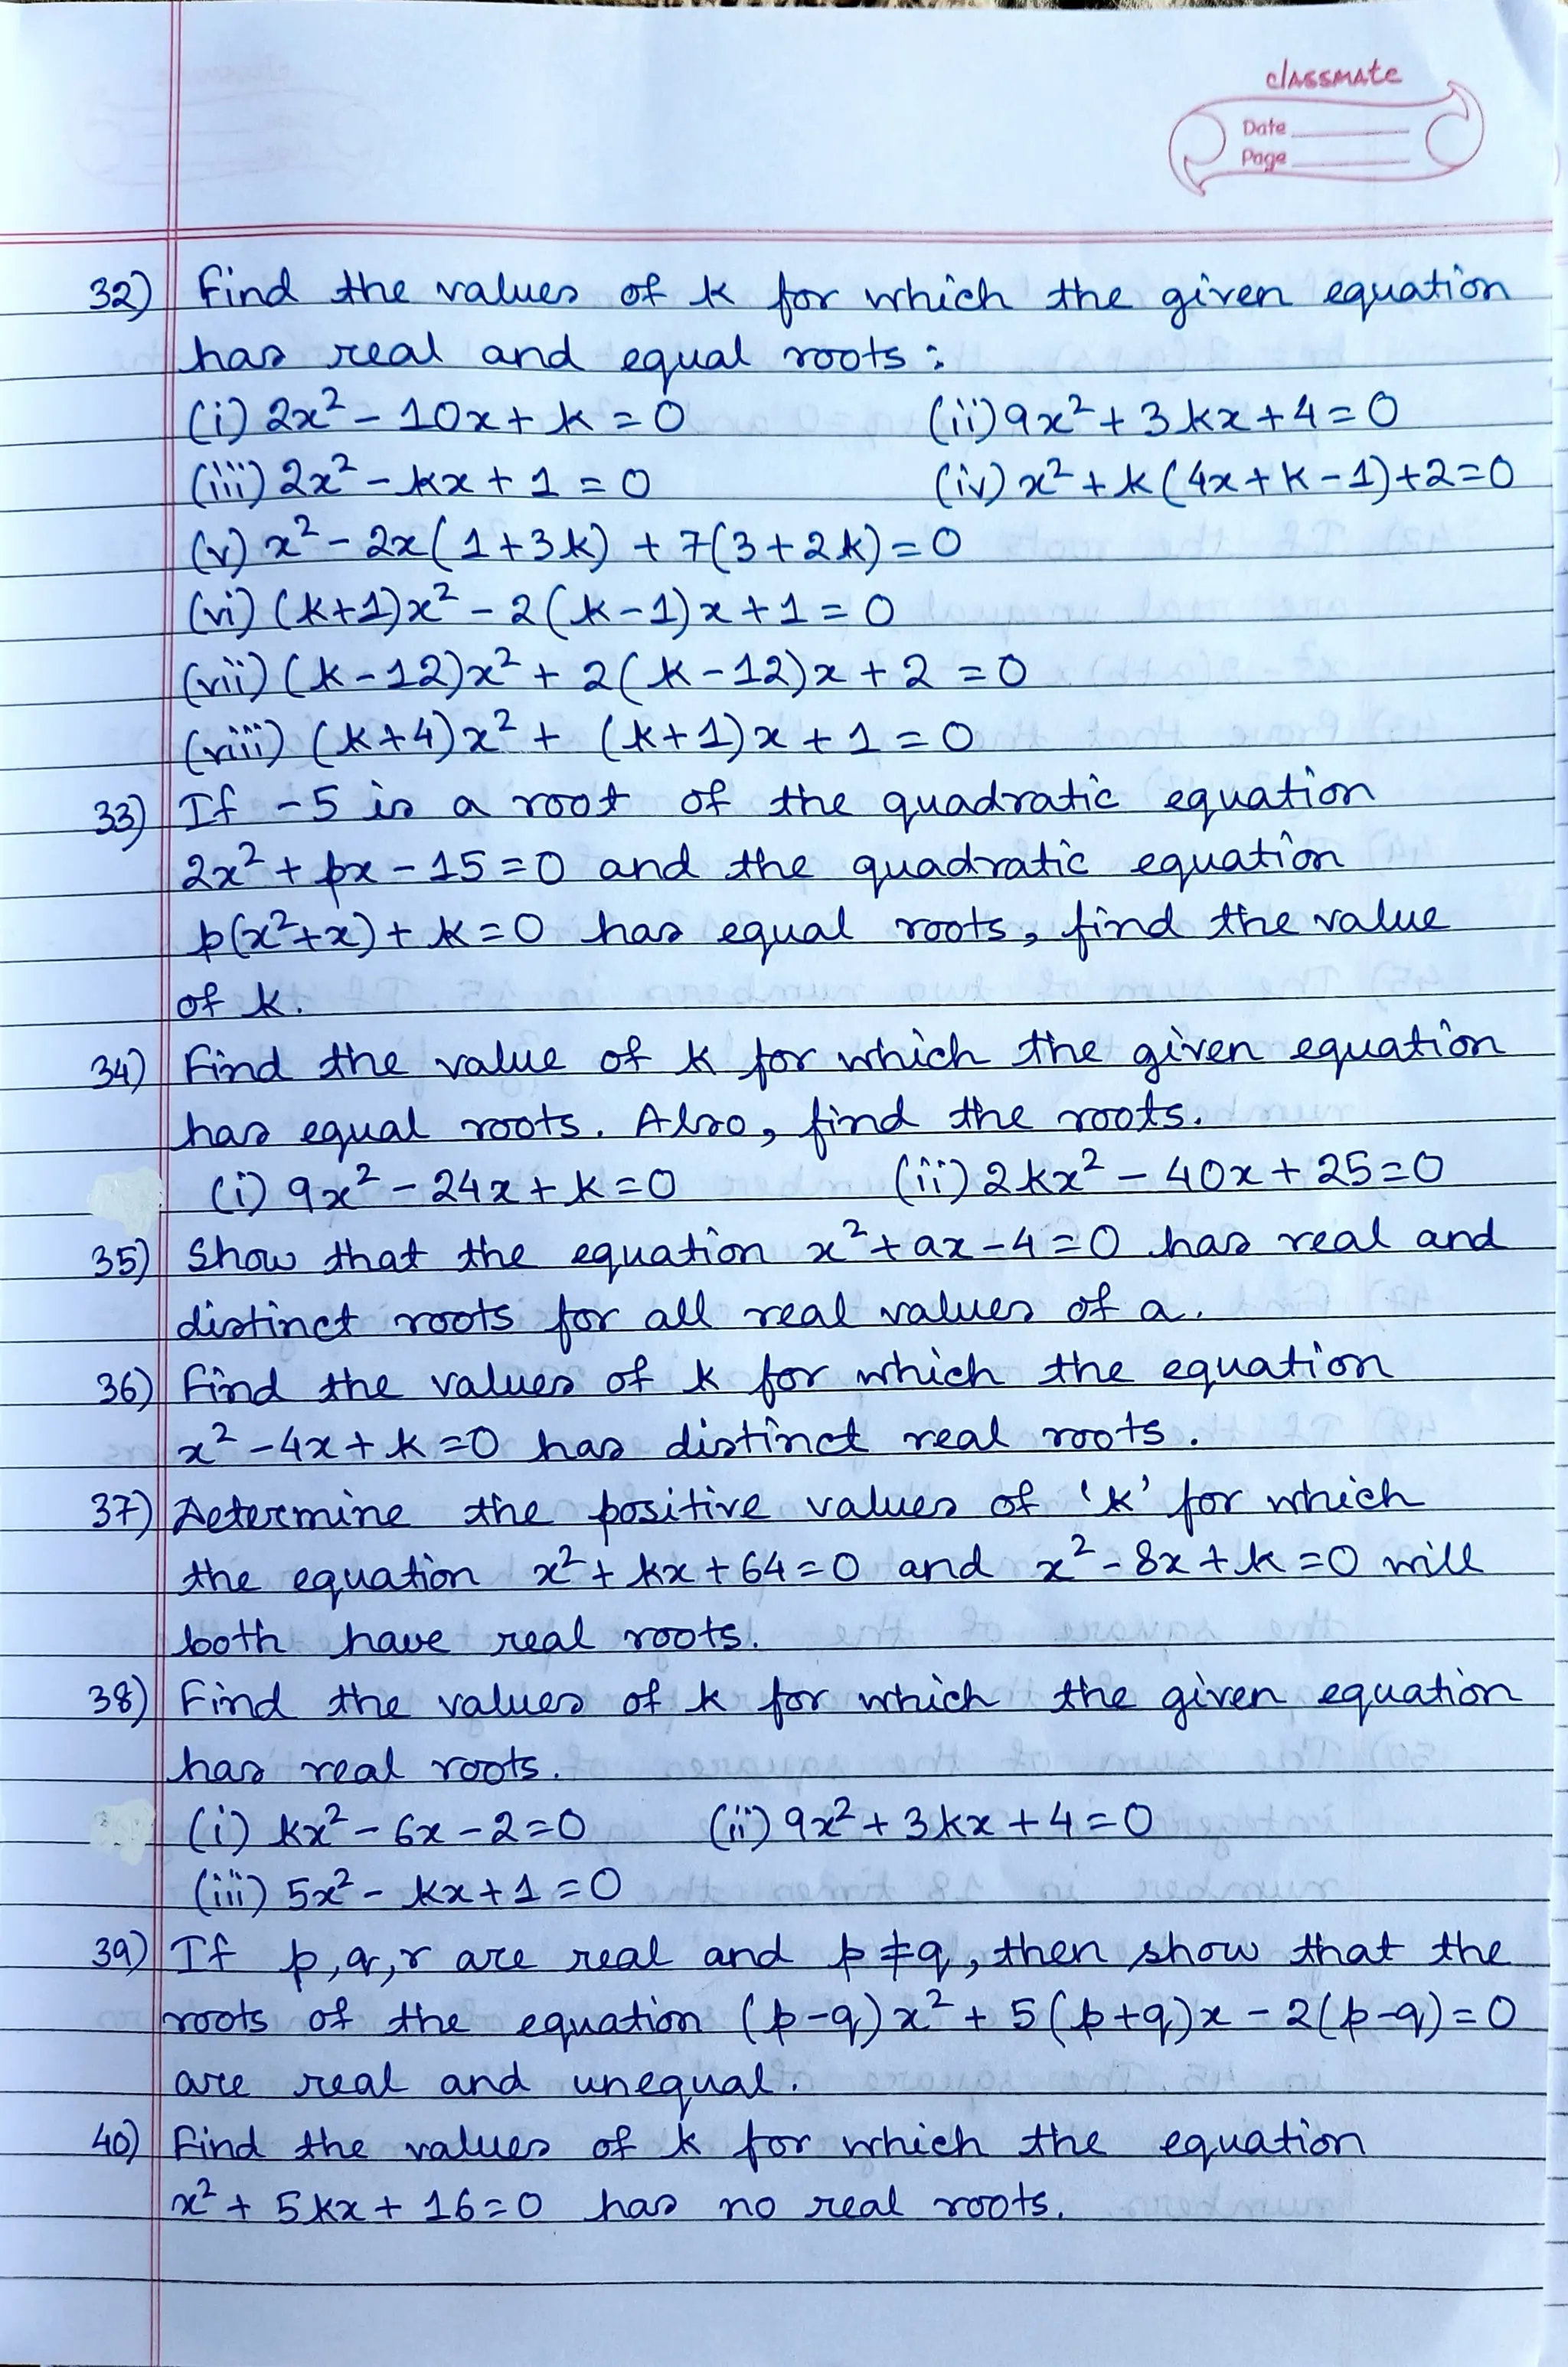 classmate
Date
Page
32) Find the values of k for which the given equation
has real and equal roots :
(i) 2x² - 10x + k = 0 (ii) 9x² + 3kx + 4 = 0
(iii) 2x² - kx + 1 = 0 (iv) x² + k(4x + k - 1) + 2 = 0
(v) x² - 2x(1 + 3k) + 7(3 + 2k) = 0
(vi) (k+1)x² - 2(k - 1)x + 1 = 0
(vii) (k - 12)x² + 2(k - 12)x + 2 = 0
(viii) (k+4)x² + (k+1)x + 1 = 0
33) If -5 is a root of the quadratic equation
2x² + px - 15 = 0 and the quadratic equation
p(x²+x) + k = 0 has equal roots, find the value
of k.
34) Find the value of k for which the given equation
has equal roots. Also, find the roots.
(i) 9x² - 24x + k = 0 (ii) 2kx² - 40x + 25 = 0
35) Show that the equation x² + ax - 4 = 0 has real and
distinct roots for all real values of a.
36) Find the values of k for which the equation
x² - 4x + k = 0 has distinct real roots.
37) Determine the positive values of 'k' for which
the equation x² + kx + 64 = 0 and x² - 8x + k = 0 will
both have real roots.
38) Find the values of k for which the given equation
has real roots.
(i) kx² - 6x - 2 = 0 (ii) 9x² + 3kx + 4 = 0
(iii) 5x² - kx + 1 = 0
39) If p, q, r are real and p ≠ q, then show that the
roots of the equation (p-q)x² + 5(p+q)x - 2(p-q) = 0
are real and unequal.
40) Find the values of k for which the equation
x² + 5kx + 16 = 0 has no real roots.